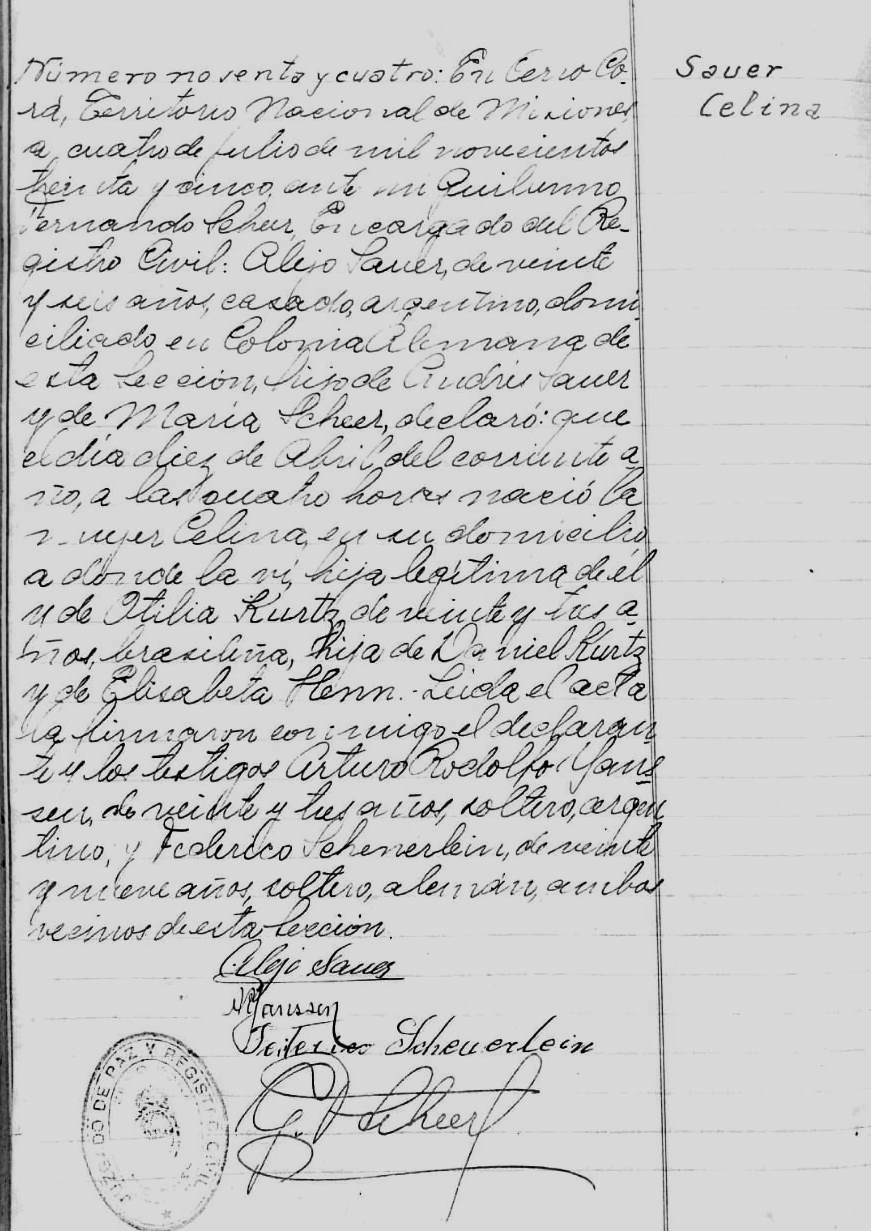 Número noventa y cuatro: En Cerro Co-
rá, Territorio Nacional de Misiones,
a cuatro de julio de mil novecientos
treinta y cinco, ante mi Guillermo
Fernando Scheer, Encargado del Re-
gistro Civil: Alejo Sauer, de veinte
y seis años, casado, argentino, domi
ciliado en Colonia Alemana de
esta Sección, hijo de Andrés Sauer
y de María Scheer, declaró: que
el día diez de Abril del corriente a-
ño, a las cuatro horas nació la
mujer Celina, en su domicilio
a donde la vi, hija legítima de él
y de Otilia Kurtz de veinte y tres a-
ños, brasileña, hija de Daniel Kurtz
y de Elisabeta Henn.- Leida el acta
la firmaron conmigo el declaran
te y los testigos Arturo Rodolfo Yans
sen, de veinte y tres años, soltero, argen
tino, y Federico Scheuerlein, de veinte
y nueve años, soltero, alemán, ambos
vecinos de esta Sección.
Sauer
Celina
Alejo Sauer
Yanssen
Federico Scheuerlein
G. F. Scheer
JUZGADO DE PAZ Y REGISTRO CIVIL